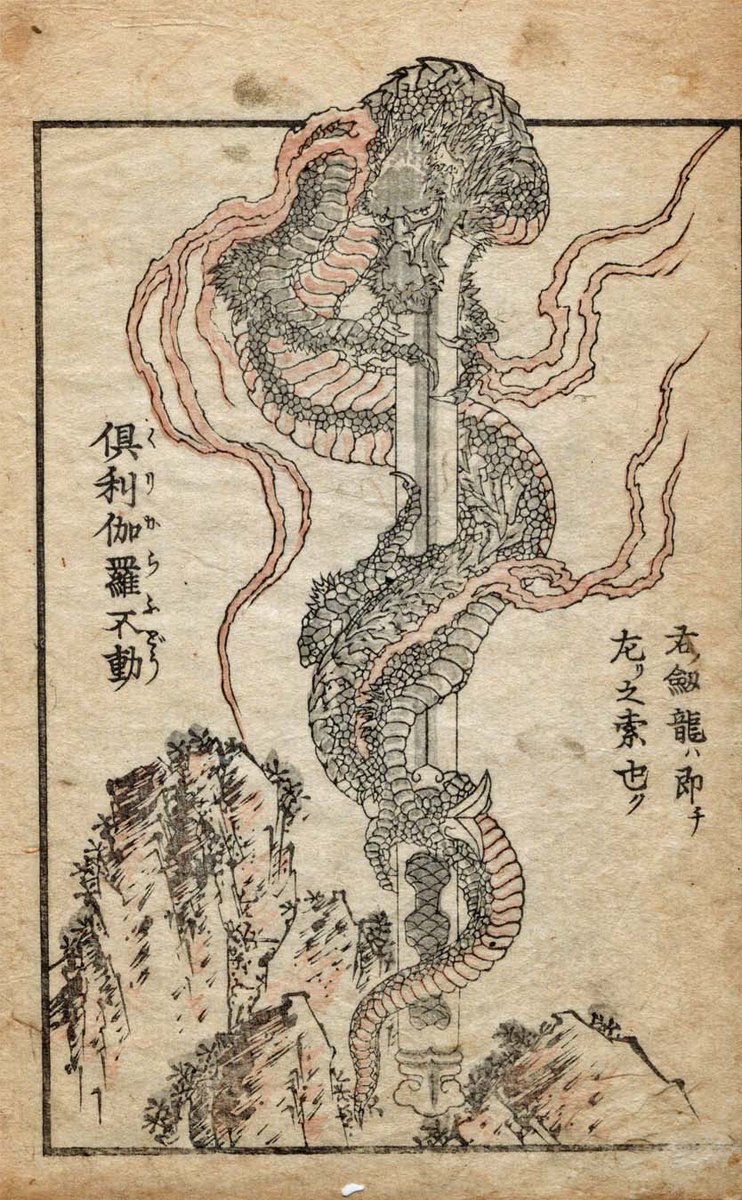 右ノ劔龍ハ即チ
左リ之索也ク
くりからふどう
倶利伽羅不動